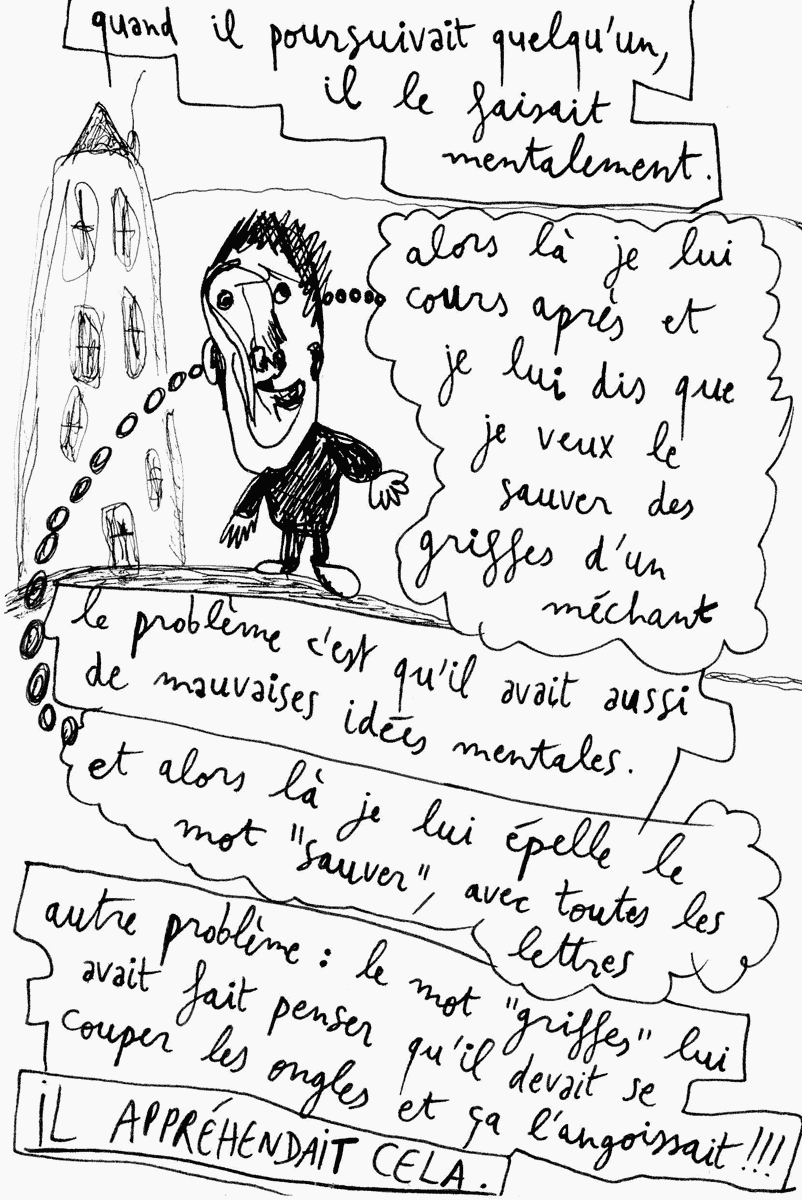 quand il poursuivait quelqu'un,
il le faisait
mentalement.
alors là je lui
cours après et
je lui dis que
je veux le
sauver des
griffes d'un
méchant
le problème c'est qu'il avait aussi
de mauvaises idées mentales.
et alors là je lui épelle le
mot "sauver", avec toutes les
lettres
autre problème : le mot "griffes" lui
avait fait penser qu'il devait se
couper les ongles et ça l'angoissait !!!
IL APPRÉHENDAIT CELA.